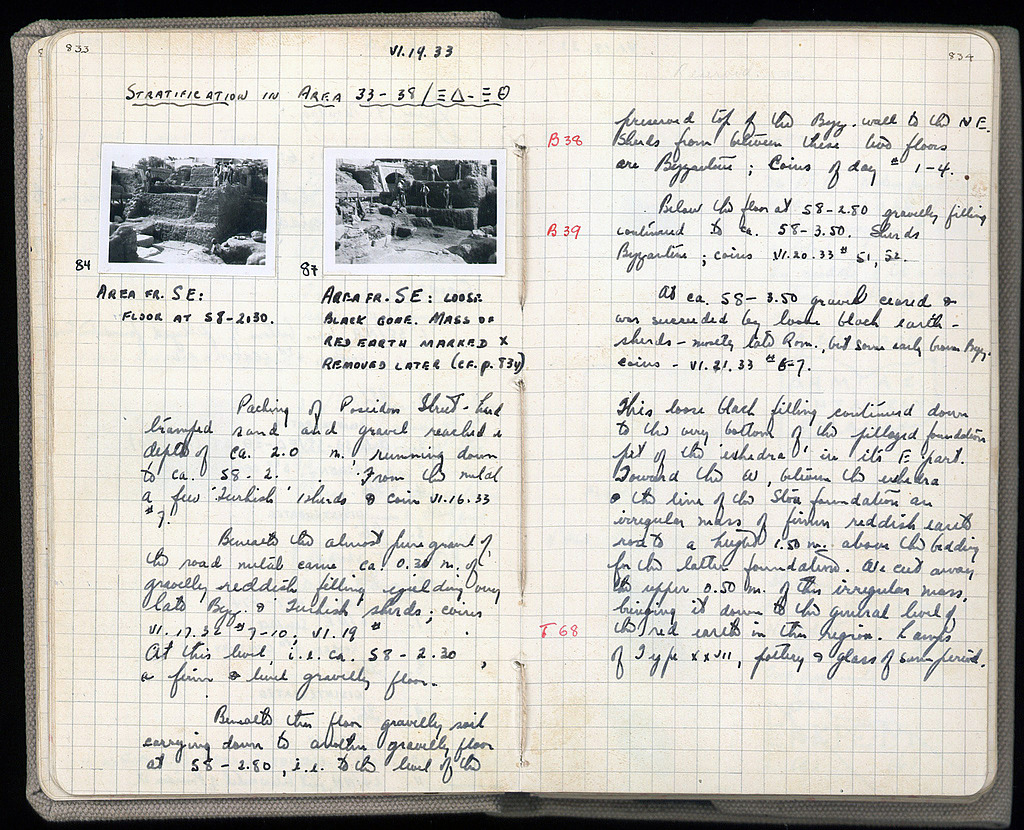 833
VI.19.33
STRATIFICATION IN AREA 33-38/ΞΔ-ΞΘ
84
AREA FR. SE:
FLOOR AT 58-2.30.
87
AREA FR. SE: LOOSE
BLACK GONE. MASS OF
RED EARTH MARKED X
REMOVED LATER (CF. p. 834)
Packing of Poseidon Street - hard
tramped sand and gravel reached a
depth of ca. 2.0 m, running down
to ca. 58-2. . From the metal
a few 'Turkish' sherds & coin VI.16.33
#7.
Beneath the almost pure gravel of
the road metal came ca. 0.30 m. of
gravelly reddish filling yielding very
late Byz. & 'Turkish' sherds; coins
VI.17.32 #7-10; VI.19 #
At this level, i.e. ca. 58-2.30,
a firm & level gravelly floor.
Beneath this floor gravelly soil
carrying down to another gravelly floor
at 58-2.80, i.e. to the level of the
834
preserved top of the Byz. wall to the NE.
B 38
Sherds from between these two floors
are Byzantine; Coins of day # 1-4.
Below the floor at 58-2.80 gravelly filling
B 39
continued to ca. 58-3.50. Sherds
Byzantine; coins VI.20.33 # 51, 52.
At ca. 58-3.50 gravel ceased &
was succeeded by loose black earth -
sherds - mostly late Rom., but some early brown Byz.
coins - VI.21.33 # 6-7.
This loose black filling continued down
to the very bottom of the pillaged foundation
pit of the 'exhedra' in its E. part.
Toward the W, between the exhedra
& the line of the Stoa foundation an
irregular mass of firmer reddish earth
rose to a height 1.50 m. above the bedding
for the latter foundation. We cut away
the upper 0.50 m. of this irregular mass,
bringing it down to the general level of
T 68
the red earth in this region. Lamps
of Type XXVII, pottery & glass of same period.